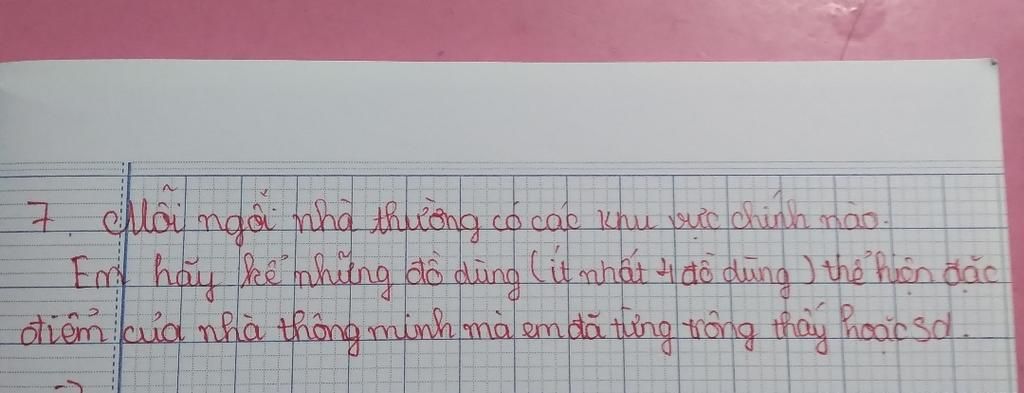 7. Mỗi ngôi nhà thường có các khu vực chính nào.
Em hãy kể những đồ dùng (ít nhất 4 đồ dùng) thể hiện đặc
điểm của nhà thông minh mà em đã từng trông thấy hoặc sd.